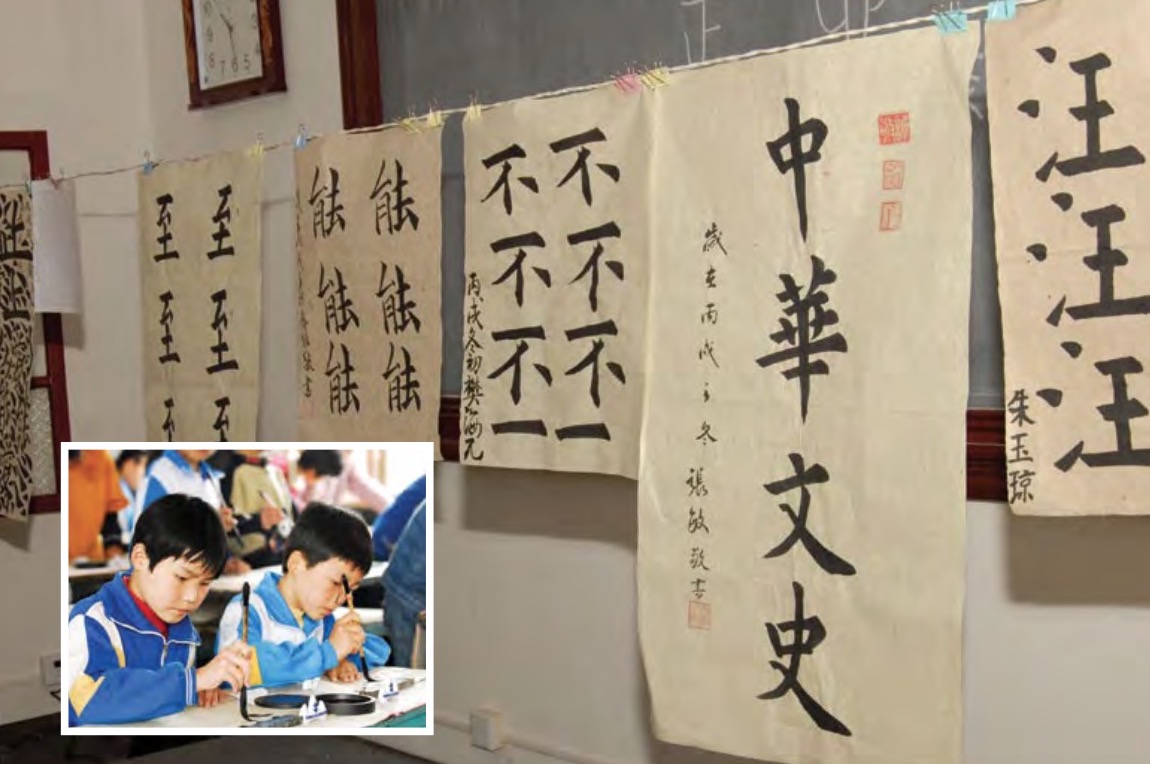 至至至
至至至
能能能
能能能
不不不一
不不不一
丙戌冬初樊海
中華文史
歲在丙戌之冬 張敏敬書
汪汪汪
朱玉琼